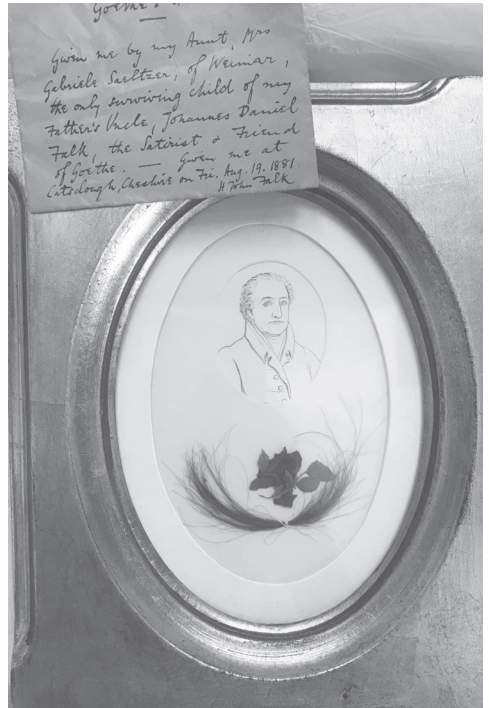 Goethe's
Given me by my Aunt, Mrs
Gabriele Saeltzer, of Weimar,
the only surviving child of my
Father's Uncle, Johannes Daniel
Falk, the Satirist & Friend
of Goethe. — Given me at
Catsclough, Cheshire on Fri. Aug. 19. 1881.
H John Falk